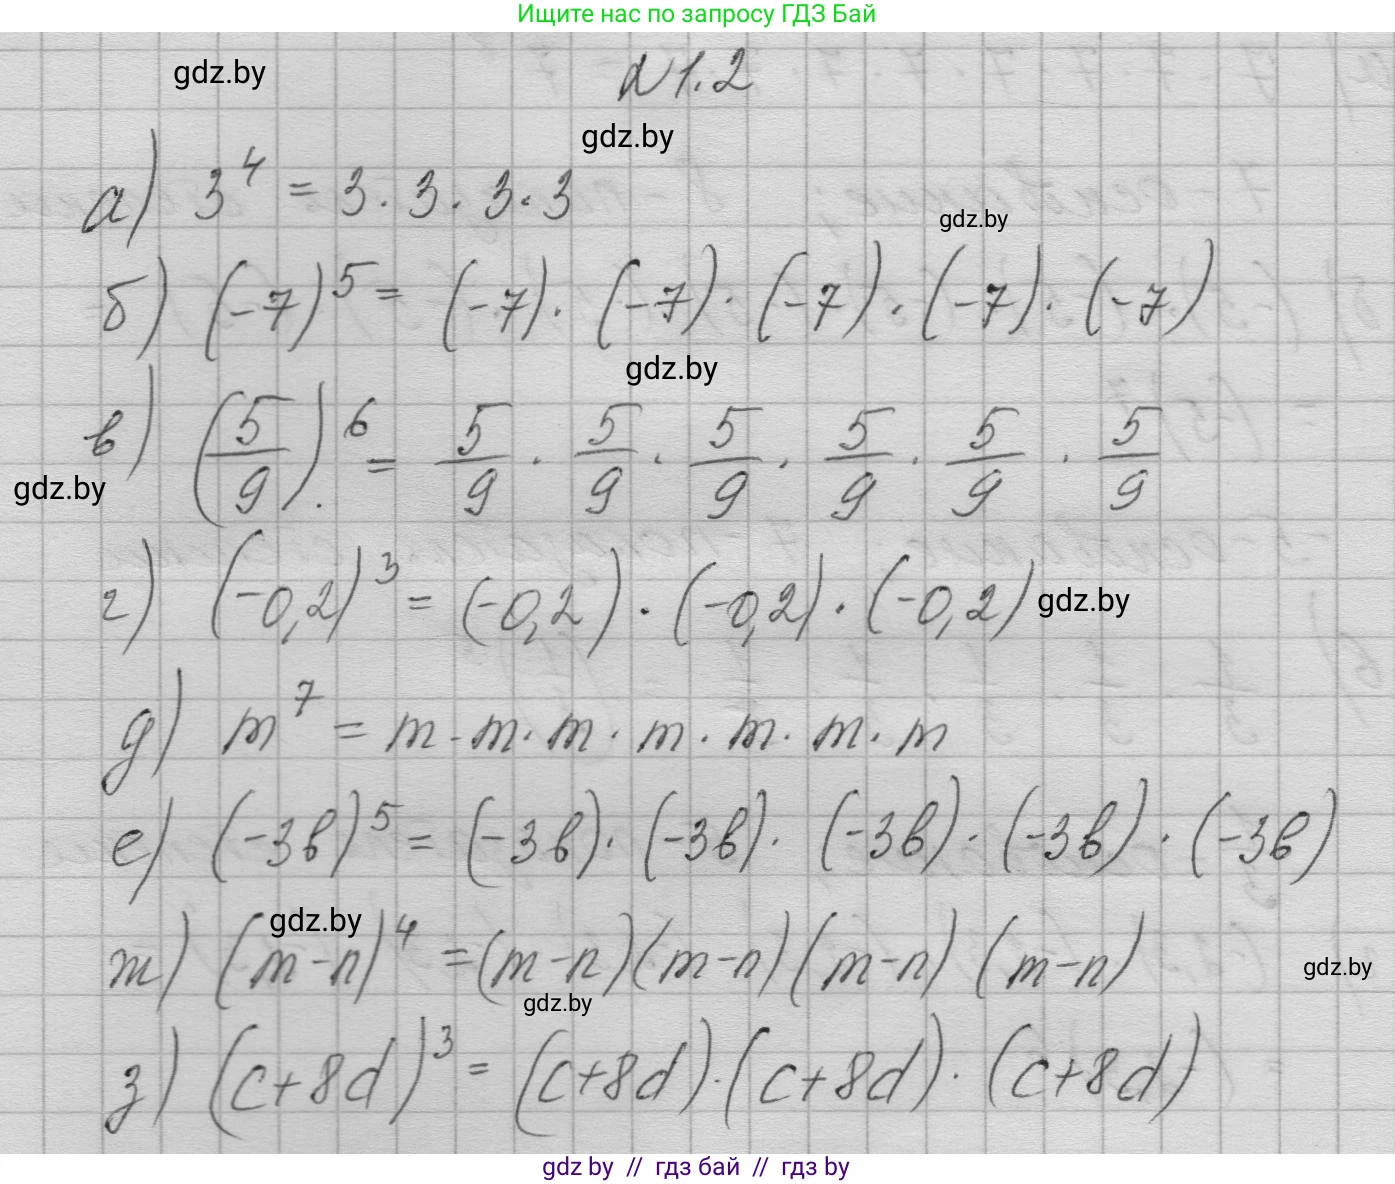 Ищите нас по запросу ГДЗ Бай
gdz.by
№1.2
gdz.by
а) 3⁴ = 3 · 3 · 3 · 3
gdz.by
б) (-7)⁵ = (-7) · (-7) · (-7) · (-7) · (-7)
gdz.by
в) (5/9)⁶ = 5/9 · 5/9 · 5/9 · 5/9 · 5/9 · 5/9
gdz.by
г) (-0,2)³ = (-0,2) · (-0,2) · (-0,2)
gdz.by
д) m⁷ = m · m · m · m · m · m · m
е) (-3в)⁵ = (-3в) · (-3в) · (-3в) · (-3в) · (-3в)
gdz.by
ж) (m-n)⁴ = (m-n)(m-n)(m-n)(m-n)
gdz.by
gdz.by
з) (c+8d)³ = (c+8d) · (c+8d) · (c+8d)
gdz by // гдз бай // гдз by